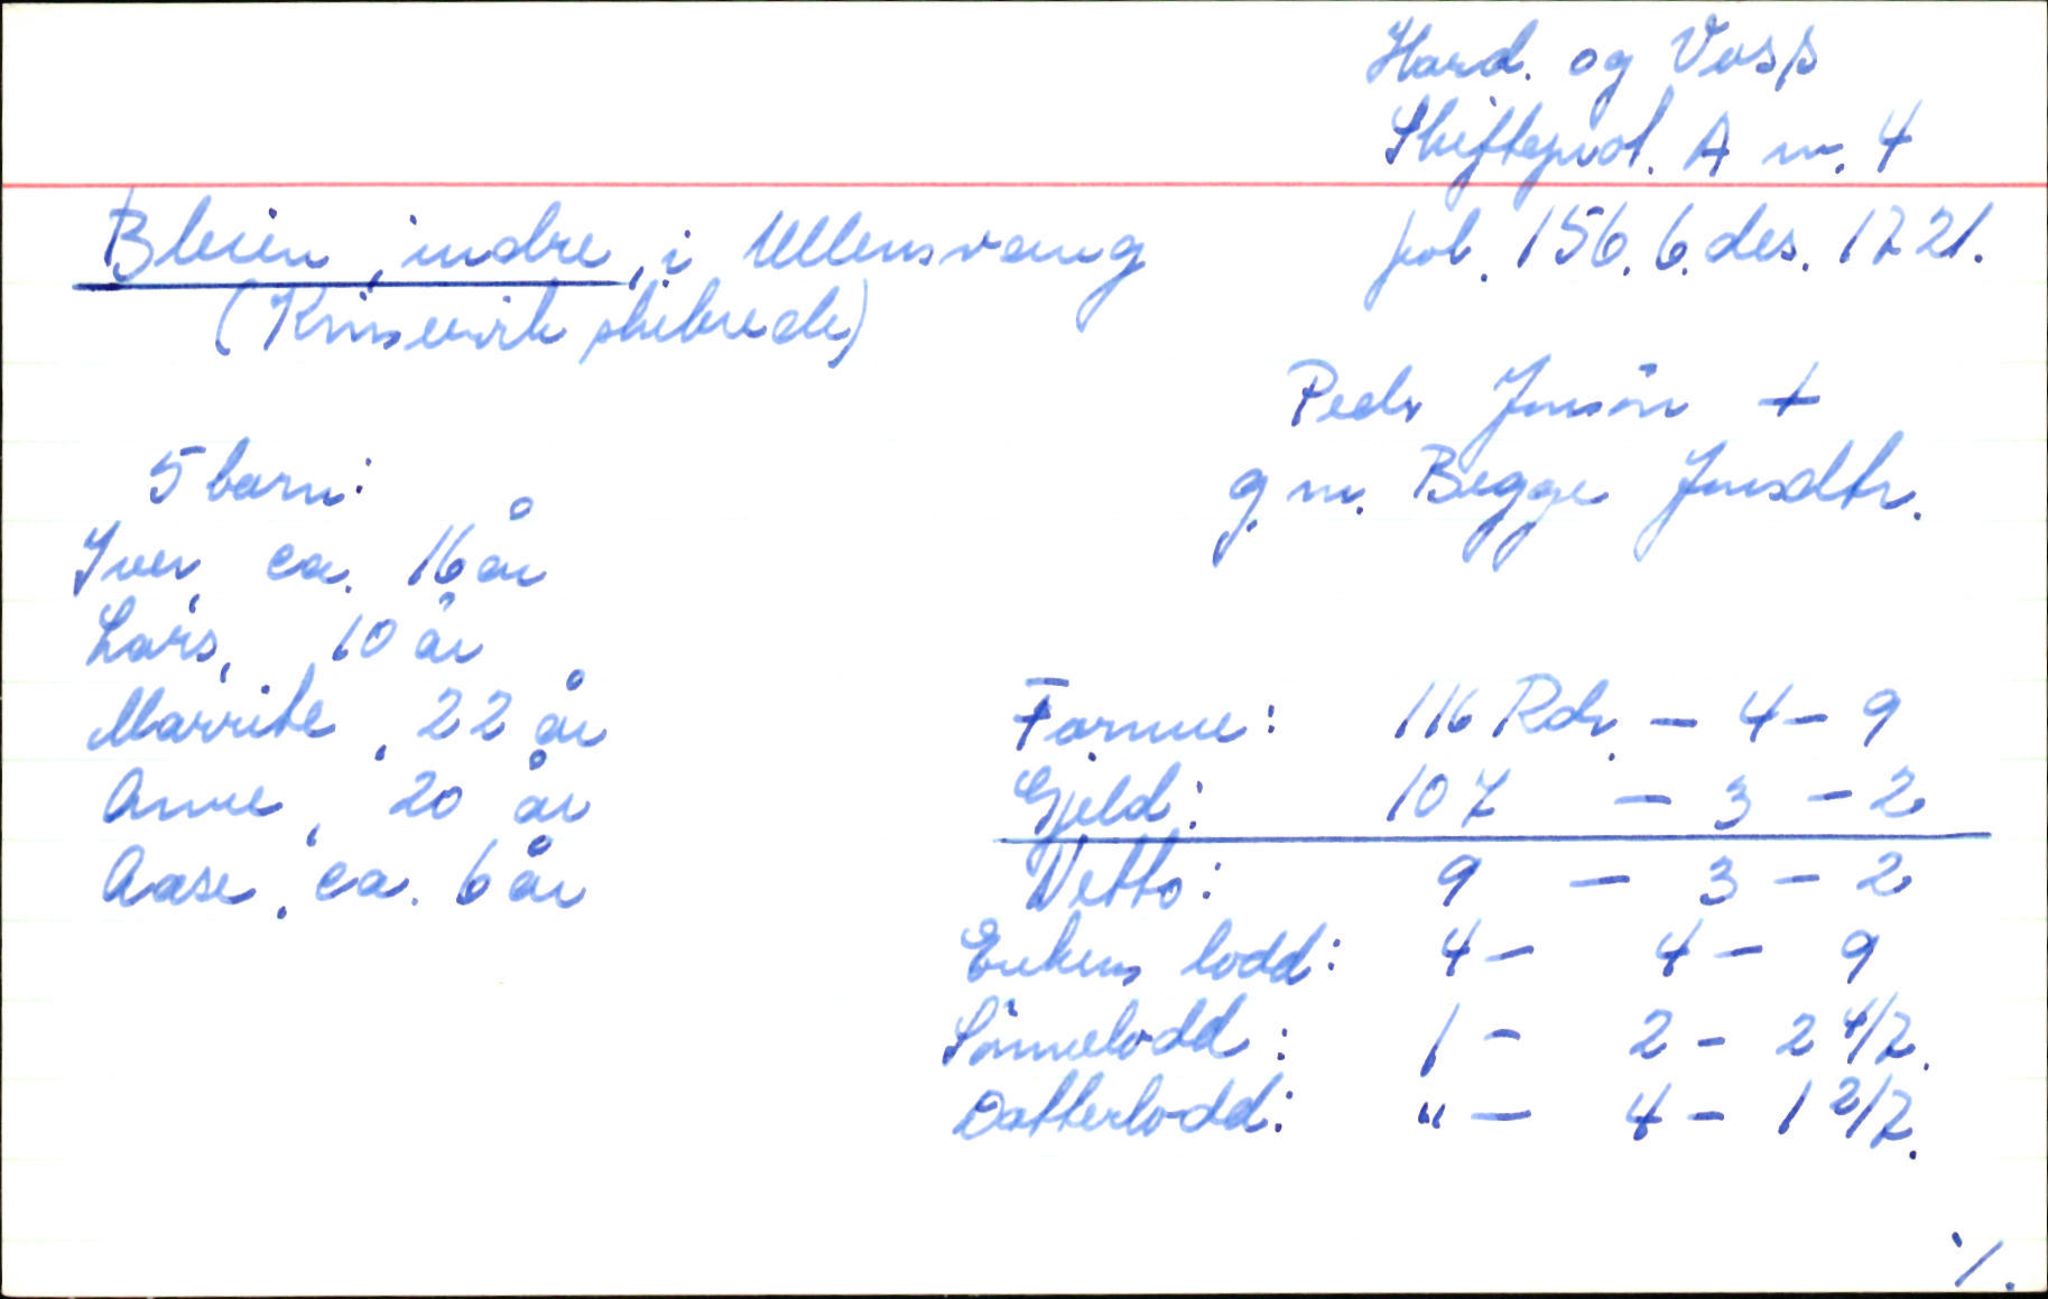 Hard. og Voss
Skifteprot. A nr. 4
Bleien, indre, i Ullensvang
fol. 156. 6. des. 1721.
(Kinservik skibrede)
Peder Jonsön +
g. m. Begge Jonsdtr.
5 barn:
Iver, ca. 16 år
Lars, 10 år
Marrite, 22 år
Anne, 20 år
Aase, ca. 6 år
Formue: 116 Rdr. - 4 - 9
Gjeld: 107 - 3 - 2
Netto: 9 - 3 - 2
Enkens lodd: 4 - 4 - 9
Sönnelodd: 1 - 2 - 2 4/7.
Datterlodd: " - 4 - 1 2/7.
·/.